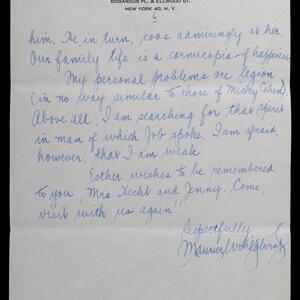 BOGARDUS PL. & ELLWOOD ST.
NEW YORK 40, N. Y.
6
him. He in turn, coos admiringly at her.
Our family life is a cornucopia of happiness
My personal problems are legion
(in no way similar to those of Mickey Cohen)
Above all, I am searching for that spirit
in man of which Job spoke. I am afraid,
however, that I am weak.
Esther wishes to be remembered
to you, Mrs. Hecht and Jenny. Come,
visit with us again!!
Respectfully,
Maurice